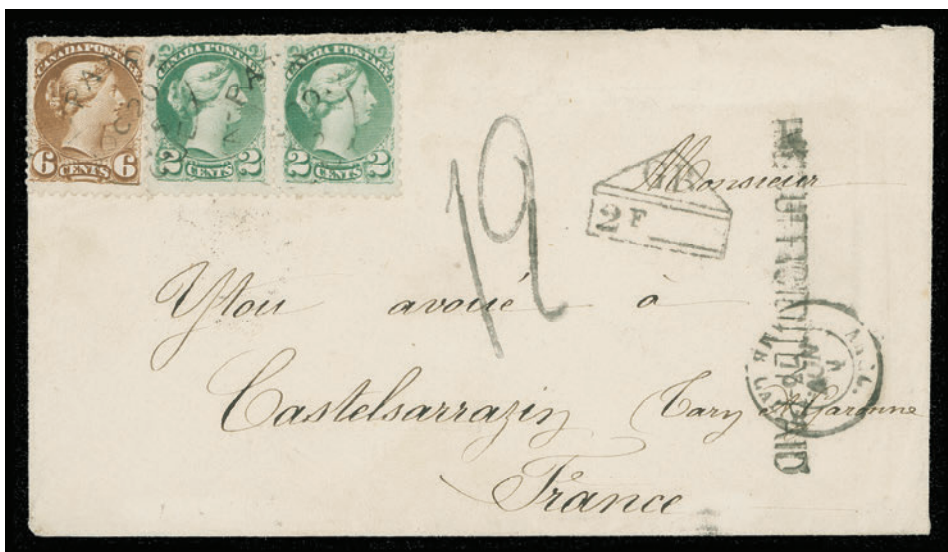 CANADA POSTAGE
6 CENTS 6
CANADA POSTAGE
2 CENTS 2
CANADA POSTAGE
2 CENTS 2
12
2 F
INSUFFICIENTLY PAID
Monsieur
Ytou avoué à
Castelsarrazin Tarn & Garonne
France